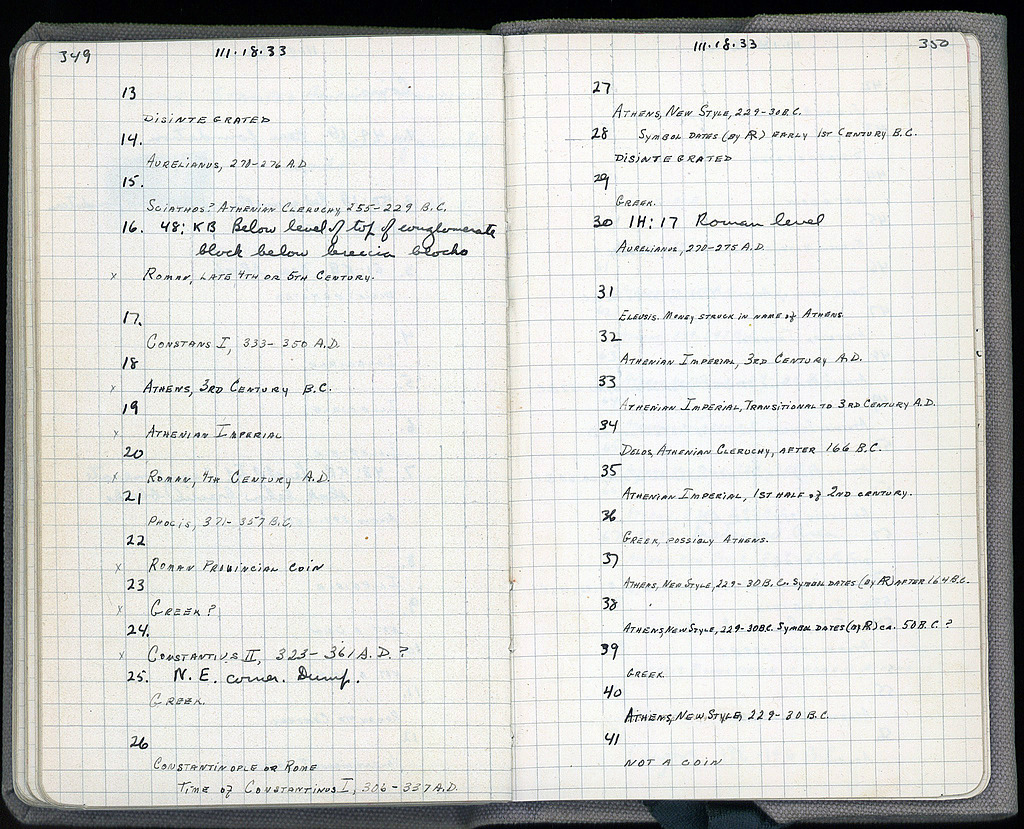 349
111.18.33
13
DISINTEGRATED
14.
AURELIANUS, 270-276 A.D
15.
SCIATHOS? ATHENIAN CLERUCHY, 255-229 B.C.
16. 48; KB Below level of top of conglomerate
block below breccia blocks
x ROMAN, LATE 4TH OR 5TH CENTURY.
17.
CONSTANS I, 333-350 A.D.
18
x ATHENS, 3RD CENTURY B.C.
19
x ATHENIAN IMPERIAL
20
x ROMAN, 4TH CENTURY A.D.
21
PHOCIS, 371-357 B.C.
22
x ROMAN PROVINCIAL COIN
23
x GREEK?
24.
x CONSTANTIUS II, 323-361 A.D.?
25. N.E. corner. Dump.
GREEK.
26
CONSTANTINOPLE OR ROME
TIME of CONSTANTINUS I, 306-337 A.D.
111.18.33
350
27
ATHENS, NEW STYLE, 229-30 B.C.
28 SYMBOL DATES (BY AR) EARLY 1ST CENTURY B.C.
DISINTEGRATED
29
GREEK.
30 1H; 17 Roman level
AURELIANUS, 270-275 A.D.
31
ELEUSIS. MONEY STRUCK IN NAME of ATHENS.
32
ATHENIAN IMPERIAL, 3RD CENTURY A.D.
33
ATHENIAN IMPERIAL, TRANSITIONAL TO 3RD CENTURY A.D.
34
DELOS, ATHENIAN CLERUCHY, AFTER 166 B.C.
35
ATHENIAN IMPERIAL, 1ST HALF of 2ND CENTURY.
36
GREEK, POSSIBLY ATHENS.
37
ATHENS, NEW STYLE, 229-30 B.C. SYMBOL DATES (BY AR) AFTER 164 B.C.
38
ATHENS, NEW STYLE, 229-30 B.C. SYMBOL DATES (BY AR) ca. 50 B.C.?
39
GREEK.
40
ATHENS, NEW STYLE, 229-30 B.C.
41
NOT A COIN